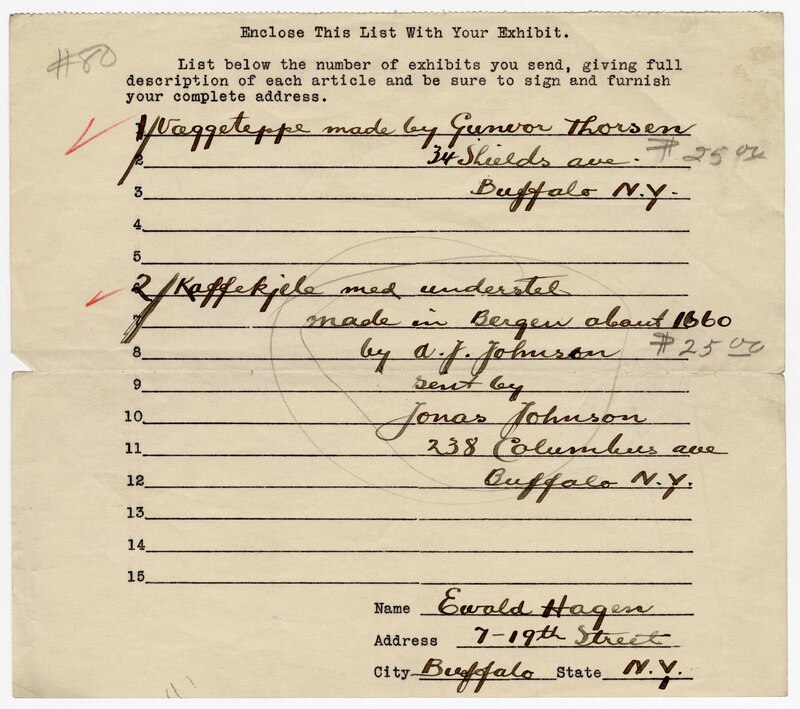 Enclose This List With Your Exhibit.
#80
List below the number of exhibits you send, giving full
description of each article and be sure to sign and furnish
your complete address.
1 Væggeteppe made by Gunvor Thorsen
2 34 Shields ave. $25 00
3 Buffalo N.Y.
4
5
2 Kaffekjele med understel
7 made in Bergen about 1860
8 by A. J. Johnson $25 00
9 sent by
10 Jonas Johnson
11 238 Columbus ave
12 Buffalo N.Y.
13
14
15
Name Ewald Hagen
Address 7-19th Street
City Buffalo State N.Y.